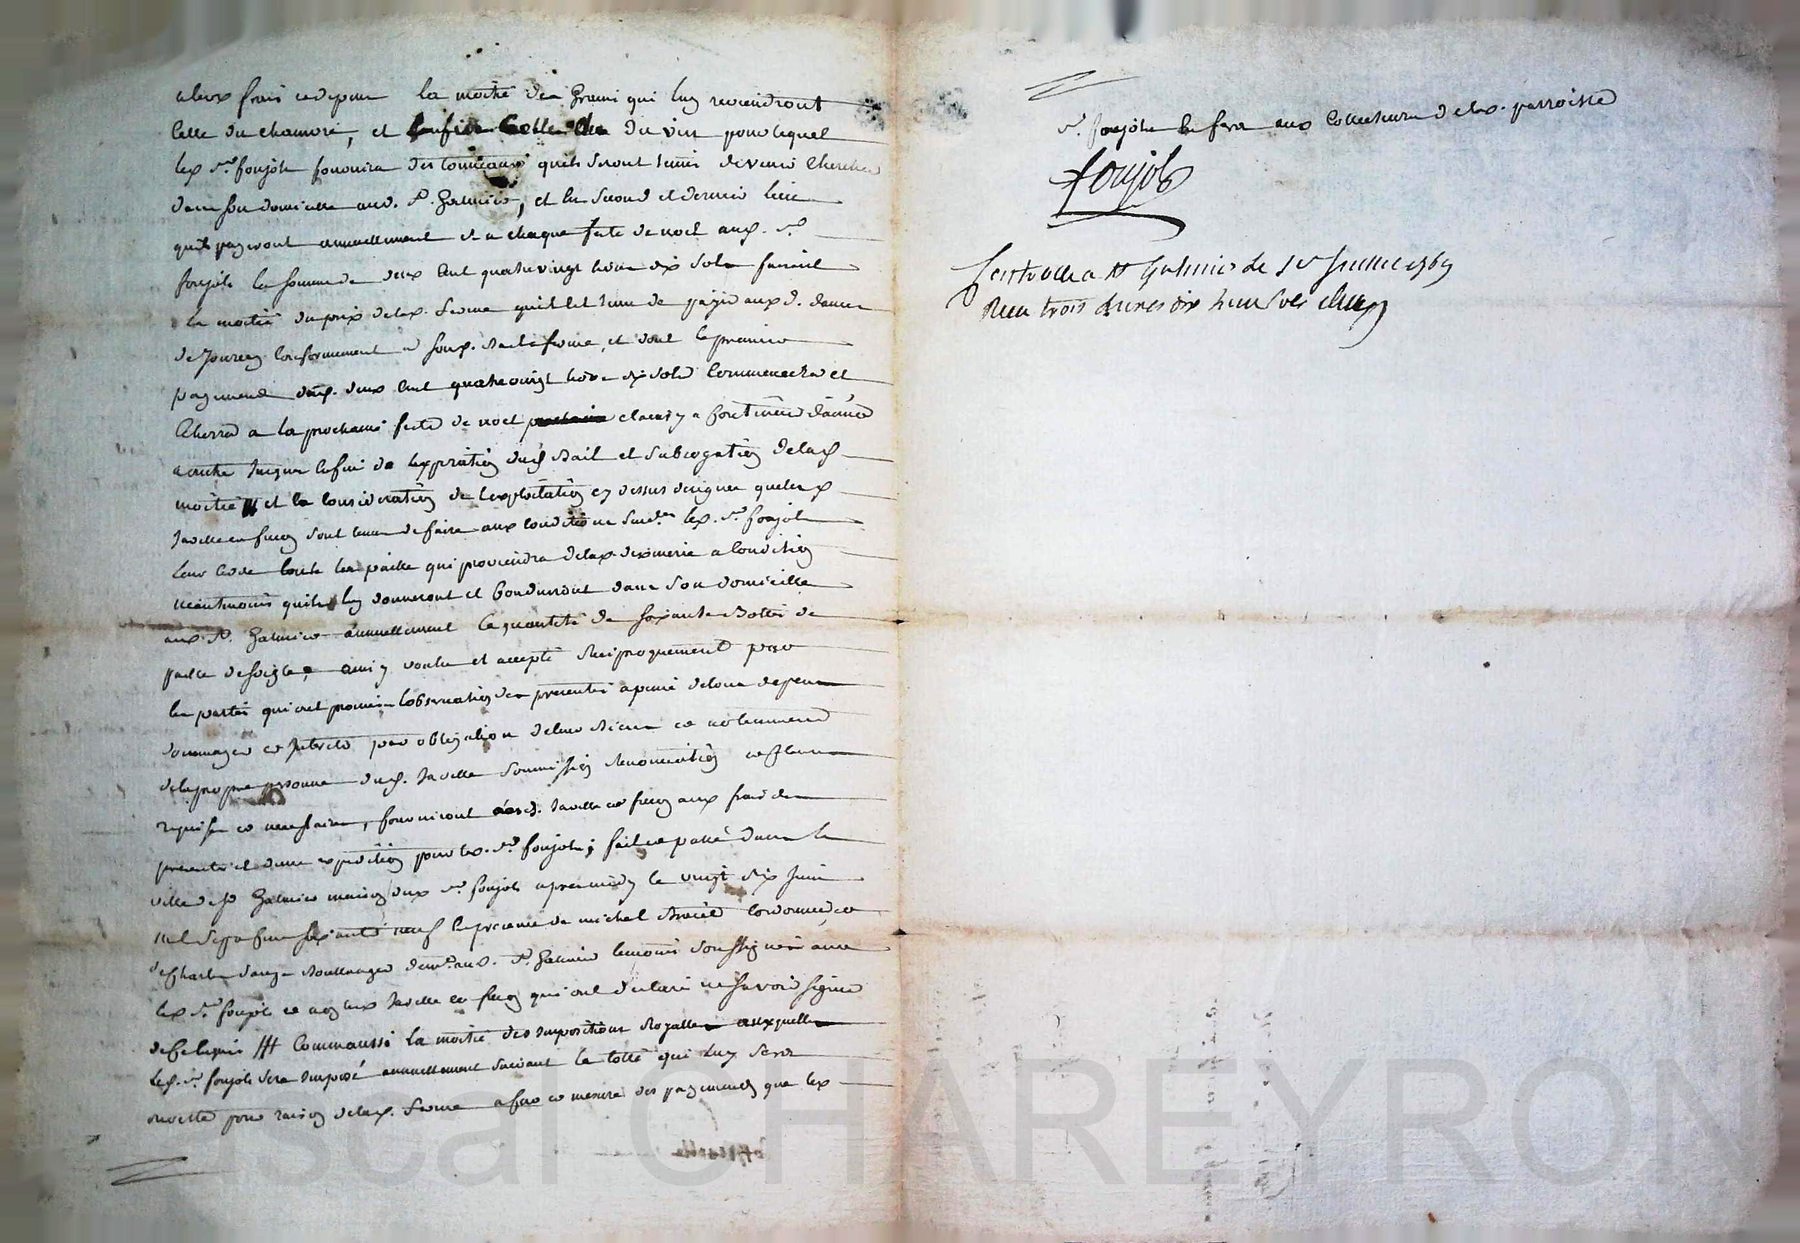 a leurs frais et depens la moitié des grains qui luy reviendront
celle du chamvre, et enfin celle du vin pour lequel
led. sr. foujols fournira des tonneaux quils seront tenus de venir chercher
dans son domicille aud. St. Galmier, et en second et dernier lieu
quils payeront annuellement et a chaque fete de noel aud. sr.
foujols la somme de deux cent quatre vingt livres dix sols faisant
la moitié du prix de lad. ferme quil est tenu de payer aud. dames
de Jourcey conformement a sond. bail a ferme, et dont le premier
payement desd. deux cent quatre vingt livres dix sols commencera et
echerra a la prochaine fete de noel et ainsy a continuer d'année
a autre jusques a la fin de l'expiration dud. Bail et subrogation de lad.
moitié /// et en consideration de l'exploitation cy dessus designée que lesd.
Javelle et fleury sont tenus de faire aux conditions susd. led. sr. foujols
leur cede toute la paille qui proviendra de lad. dixmerie a condition
neantmoins quils luy donneront et conduiront dans son domicille
aud. St. Galmier annuellement la quantité de soixante Bottes de
paille de seigle, ainsy voulu et accepté reciproquement par
les parties qui ont promis l'observation des presentes a peine de tous depens
dommages et interets par obligation de leurs Biens et notamment
de la propre personne dud. Javelle soumission renonciation et clauses
requises et necessaires, fourniront lesd. Javelle et fleury aux frais des
presentes et d'une expedition pour led. sr. foujols; fait et passé dans la
ville de St Galmier maison dud. sr. foujols apres midy le vingt six juin
mil sept cent soixante neuf en presence de michel cordonnier et
de Charles Boullanger dem.ts aud. St. Galmier temoins soussignés avec
led. sr. foujols et non lesd. Javelle et fleury qui ont declaré ne savoir signer
de ce enquis /// Comm'aussi la moitié des impositions Royalles auxquelles
led. sr. foujols sera imposé annuellement suivant la cotte qui luy sera
pour raison de lad. ferme a fur et mesure des payements que led.
sr. foujols en fera aux Collecteurs de lad. parroisse
foujols
Controllé a St Galmier le 1er Juillet 1769
Reçu trois livres dix huit sols
Pascal CHAREYRON